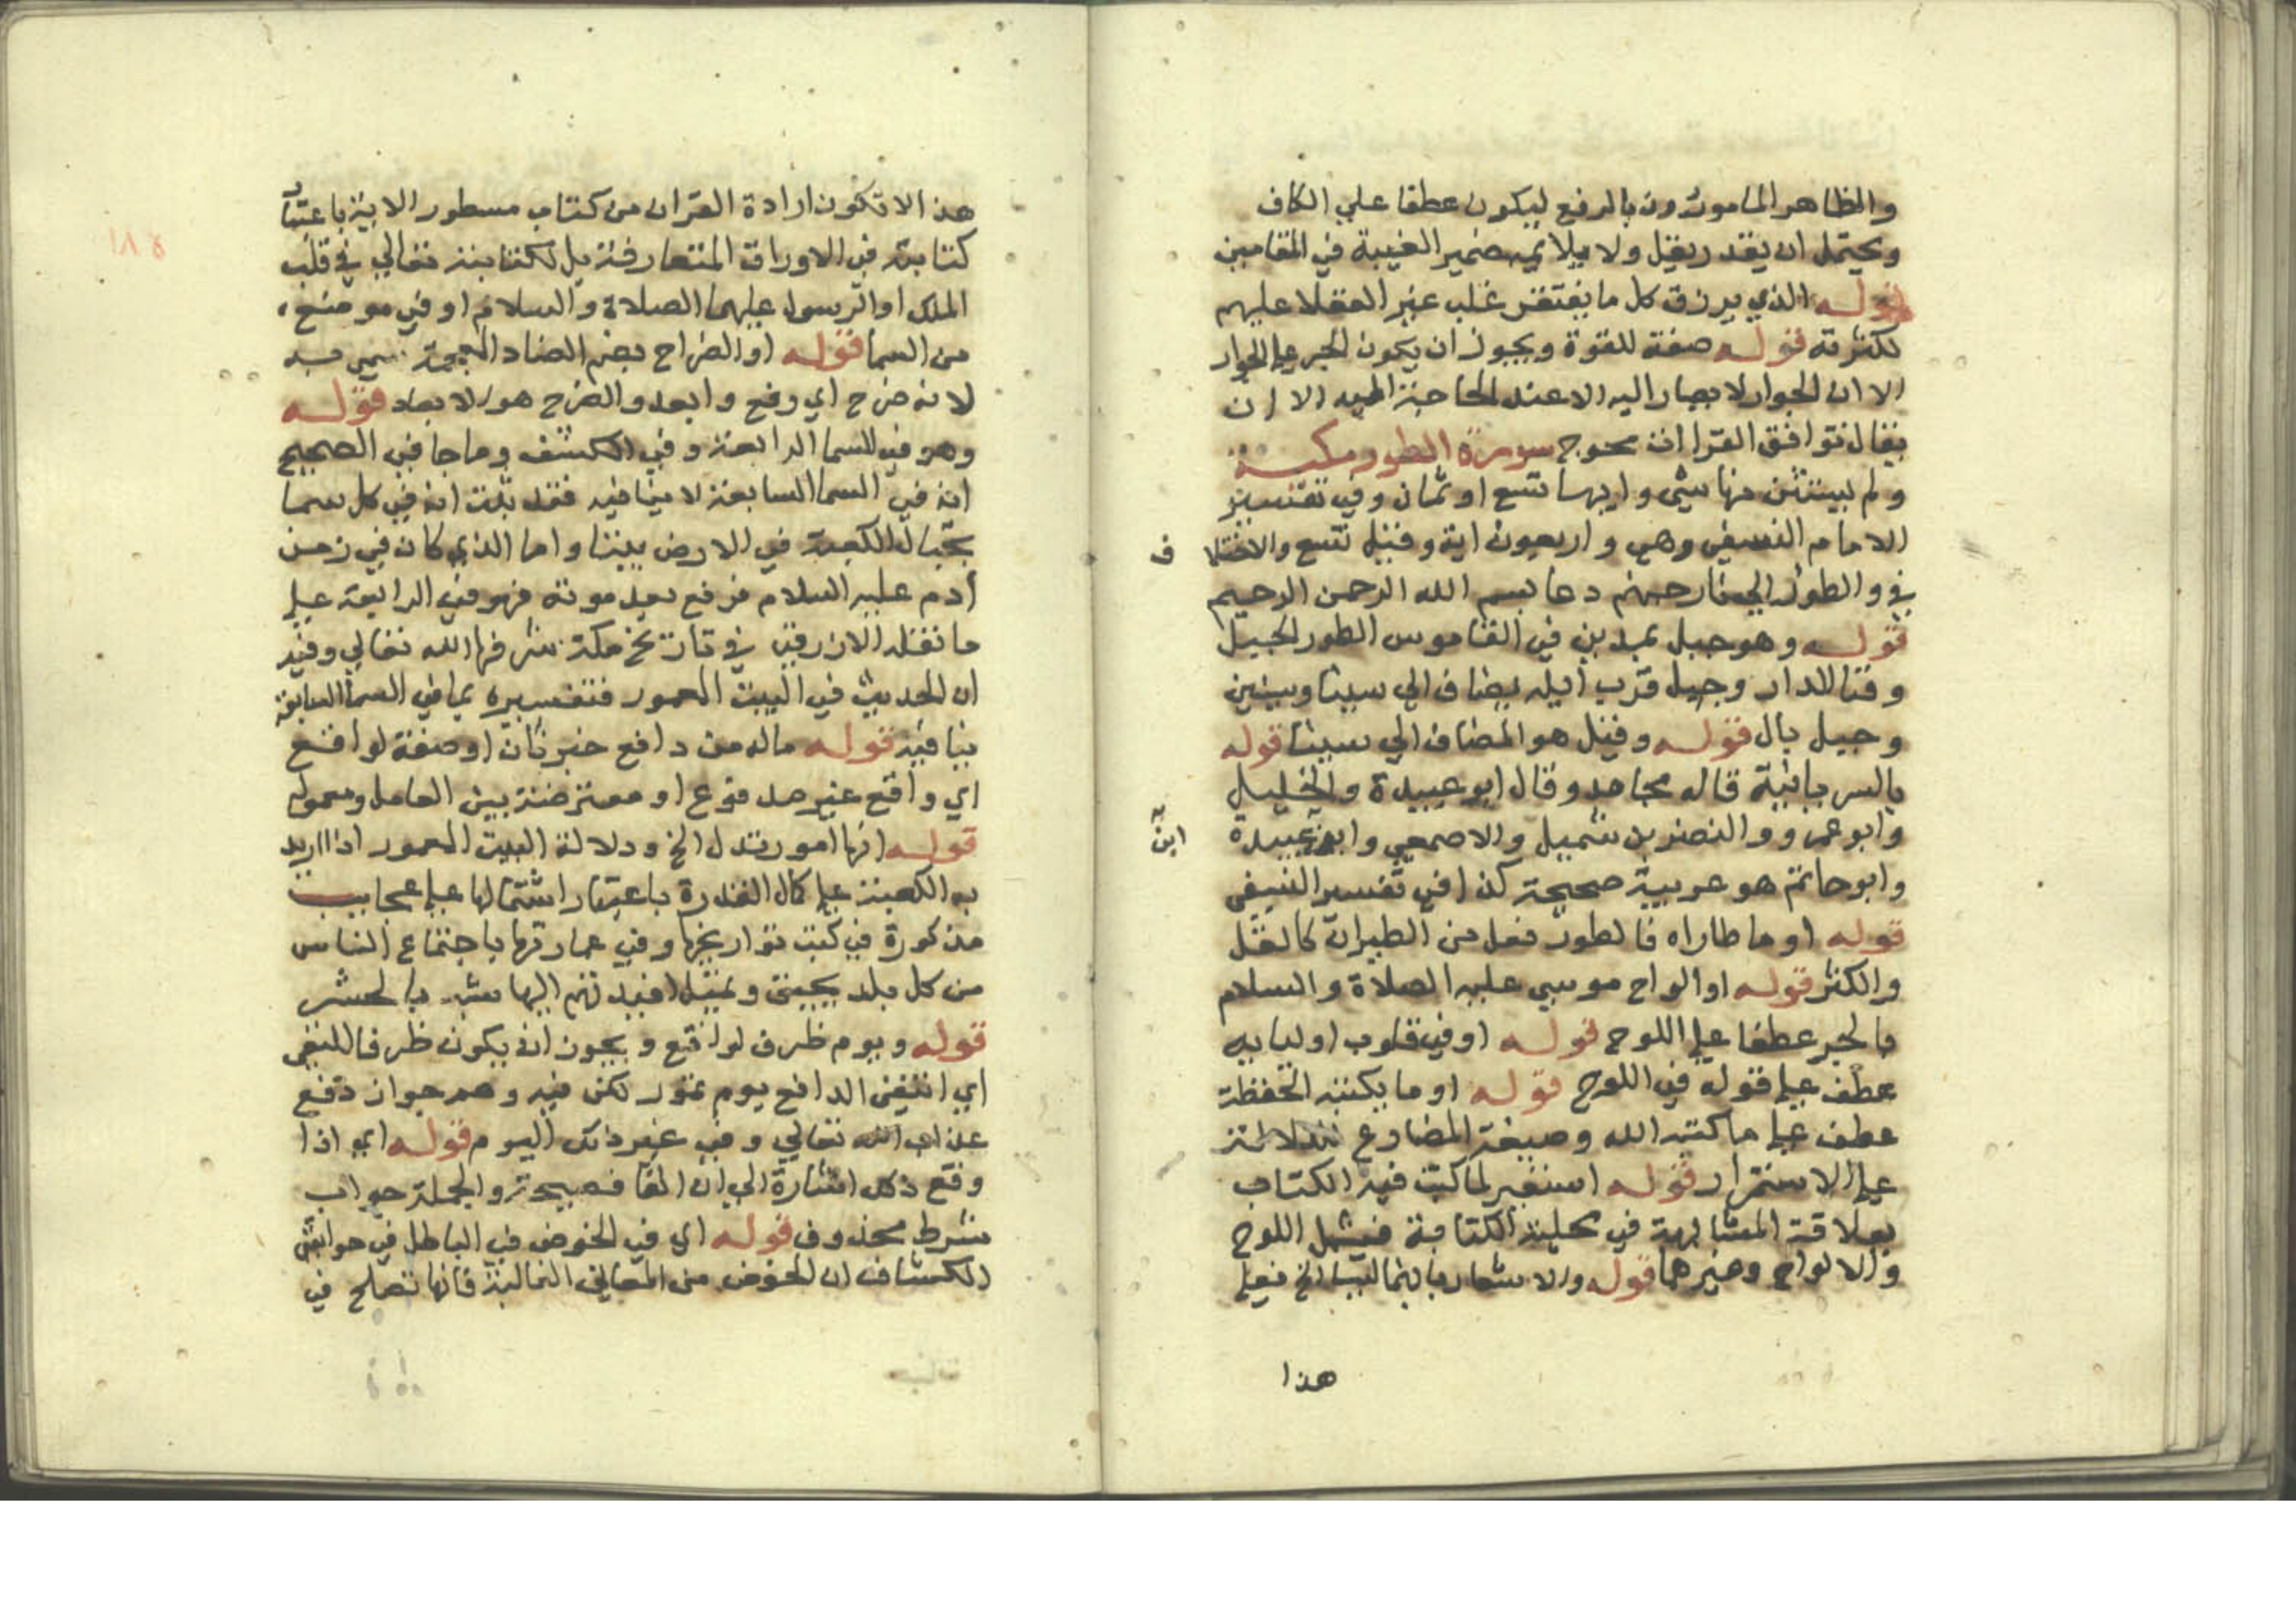 والظاهر المامورون بالرفع ليكون عطفا علي الكاف
ويحتمل ان يقدر بقل ولا يلائمه ضمير الغيبة في المقامين
قوله الذي يرزق كل ما يفتقر غلب غير العقلا عليهم
لكثرته قوله صفة للقوة ويجوز ان يكون الجر علي الجوار
الا ان الجوار لا يصار اليه الا عند الحاجة اليه الا ان
يقال توافق القراات محوج سورة الطور مكية
ولم يستثن منها شي وايها تسع او ثمان وفي تفسير
الامام النسفي وهي واربعون اية وقيل تسع والاختلا
ف
في والطور الي نار جهنم دعا بسم الله الرحمن الرحيم
قوله وهو جبل بمدين في القاموس الطور الجبل
وفنا الدار وجبل قرب ايله يضاف الي سينا وسينين
وجبل بال قوله وقيل هو المضاف الي سينا قوله
بالسريانية قاله مجاهد وقال ابو عبيدة والخليل
وابو عمرو والنضر بن شميل والاصمعي وابو عبيدة
وابو حاتم هو عربية صحيحة كذا في تفسير النسفي
قوله او ما طاراه فالطور فعل من الطيران كالقل
والكثر قوله او الواح موسي عليه الصلاة والسلام
بالجر عطفا علي اللوح قوله او في قلوب اوليايه
عطف علي قوله في اللوح قوله او ما يكتبه الحفظة
عطف علي ما كتبه الله وصيغة المضارع للدلالة
علي الاستمرار قوله استعير لما كتب فيه الكتاب
بعلاقة المشابهة في محلية الكتابة فيشمل اللوح
والالواح وغيرهما قوله والاشعار بانهما ليسا الخ فعلي
هذا
هذا لا تكون ارادة القران من كتاب مسطور الا بنه باعتبار
كتابته في الاوراق المتعارفة بل لكتابته تعالي في قلب
الملك او الرسول عليهما الصلاة والسلام او في موضع
من السما قوله او الضراح بضم الضاد المعجمة سمي به
لانه ضرح اي رفع وابعد والضرح هو الابعاد قوله
وهو في السما الرابعة وفي الكشف وما جا في الصحيح
انه في السما السابعة لا ينافيه فقد ثبت انه في كل سما
بحيال الكعبة في الارض بيتا واما الذي كان في زمن
ادم عليه السلام فرفع بعد موته فهو في الرابعة علي
ما نقله الازرقي في تاريخ مكة شرفها الله تعالي وفيه
ان الحديث في البيت المعمور فتفسيره بما في السما السابعة
ينافيه قوله ماله من دافع خبر ثان او صفة لواقع
اي واقع غير مدفوع او معترضة بين العامل ومعموله
قوله انها امور تدل الخ ودلالة البيت المعمور اذا اريد
به الكعبة علي كمال القدرة باعتبار اشتمالها علي عجايب
مذكورة في كتب تواريخها وفي عمارتها باجتماع الناس
من كل بلد بحيث ويمثل افيدتهم اليها شبه بالحشر
قوله ويوم ظرف لواقع ويجوز ان يكون ظرفا للنفي
اي انتفي الدافع يوم تمور لكن فيه وهم جواز دفع
عذاب الله تعالي وفي غير ذلك اليوم قوله اي اذا
وقع ذلك اشارة الي ان الفا فصيحة والجملة جواب
شرط محذوف قوله اي في الخوض في الباطل في حواشي
الكشاف ان الخوض من المعاني الغالبة فانها تصلح في